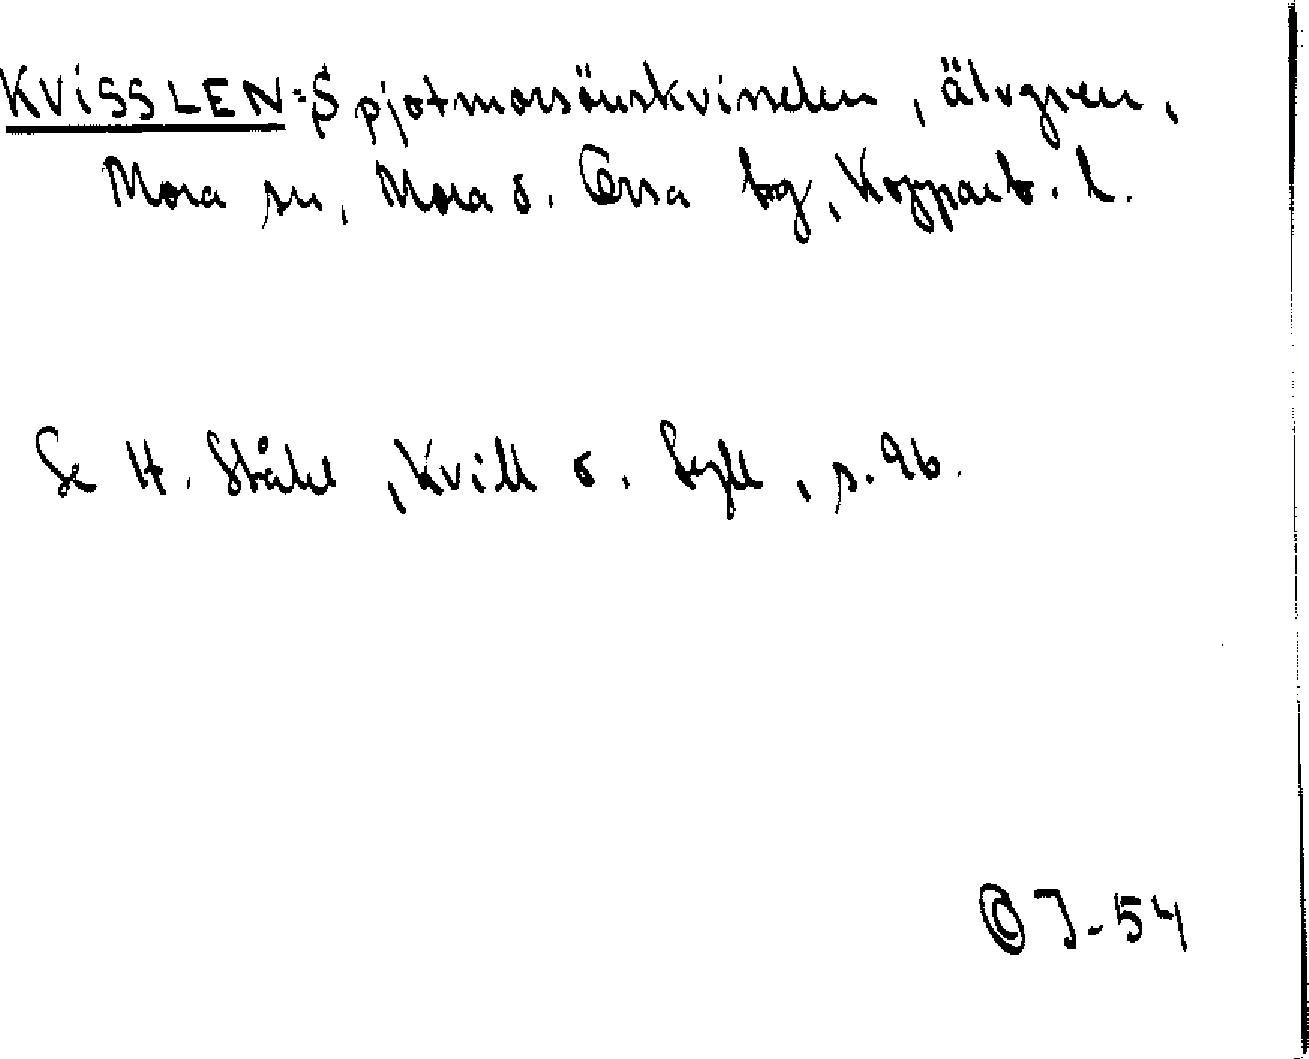 KVISSLEN = Spjotmorsönskvisslen, älvgren,
Mora sn, Mora o. Orsa tg, Kopparb. l.
Se H. Ståhl, Kvill o. Tyll, s. 96.
© J-54